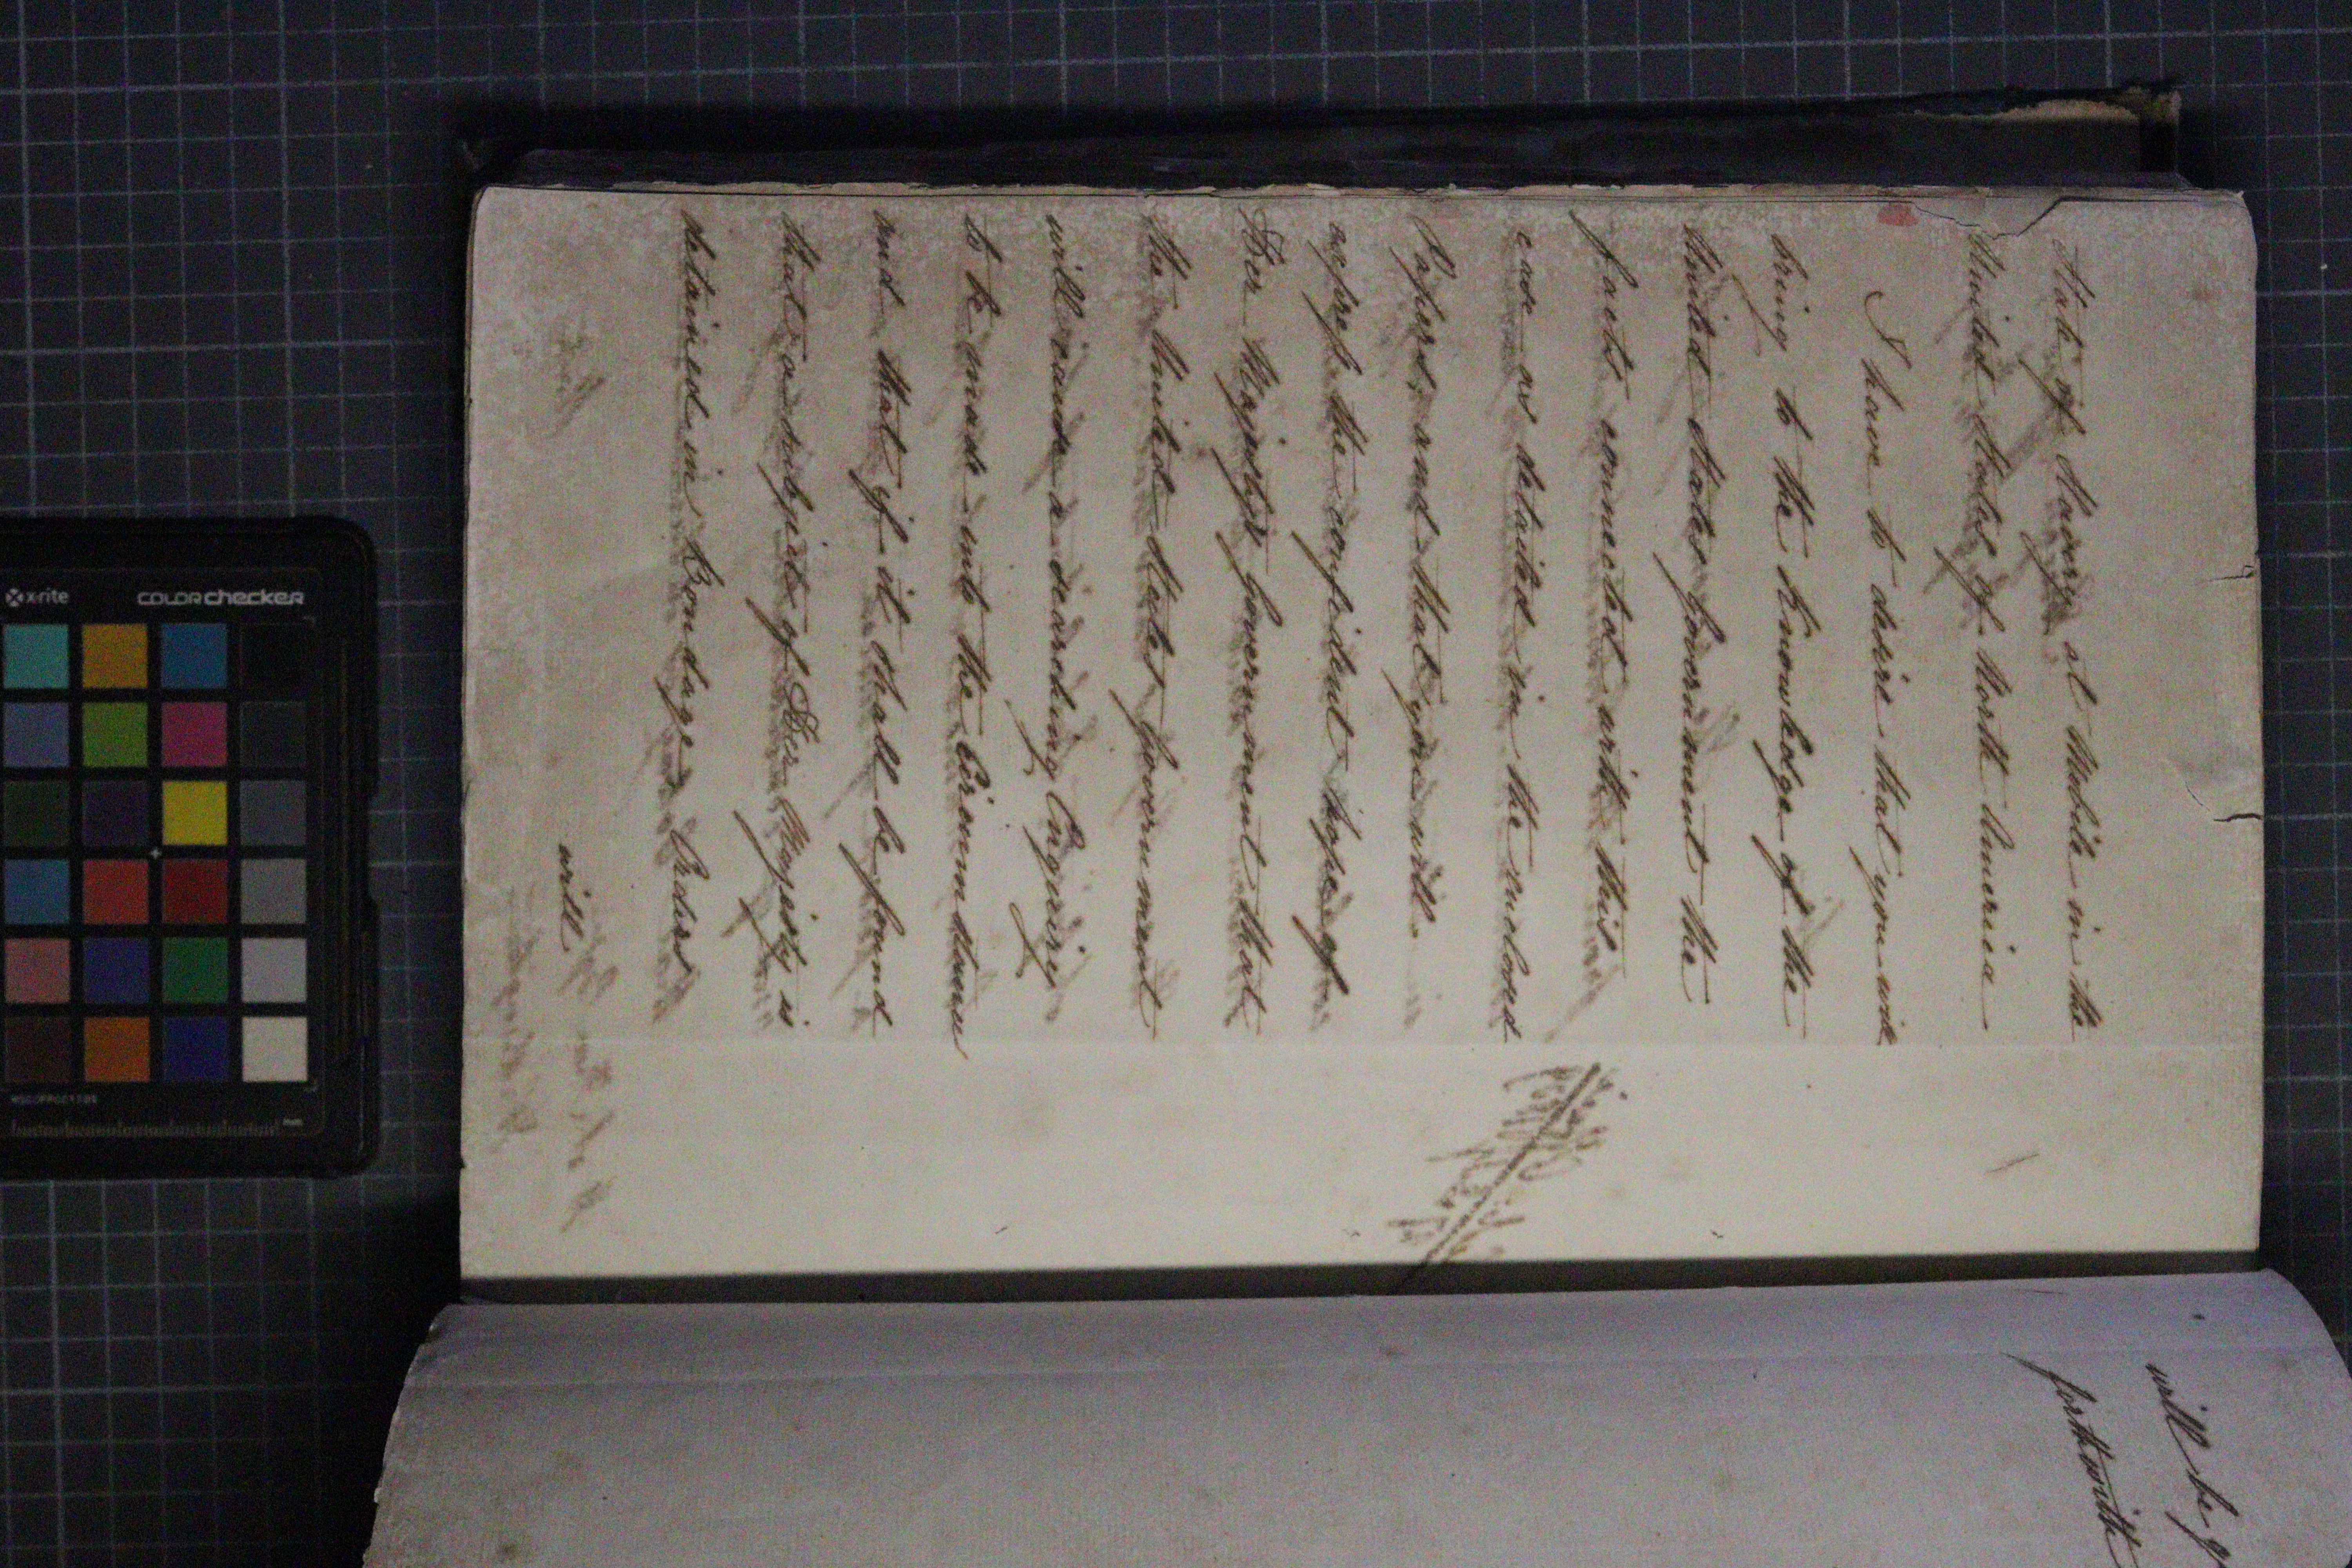 State of Slavery at Mobile in the
United States of North America
I have to desire that you will
bring to the Knowledge of the
United States Government the
facts connected with this
case as detailed in the inclosed
Papers, and that you will
express the confident hope of
Her Majesty's Government that
the United States Government
will cause a searching Enquiry
to be made into the Circumstances
and that if it shall be found
that a subject of Her Majesty is
detained in Bondage Orders
will
will be g
forthwith
x-rite
colorchecker
mm